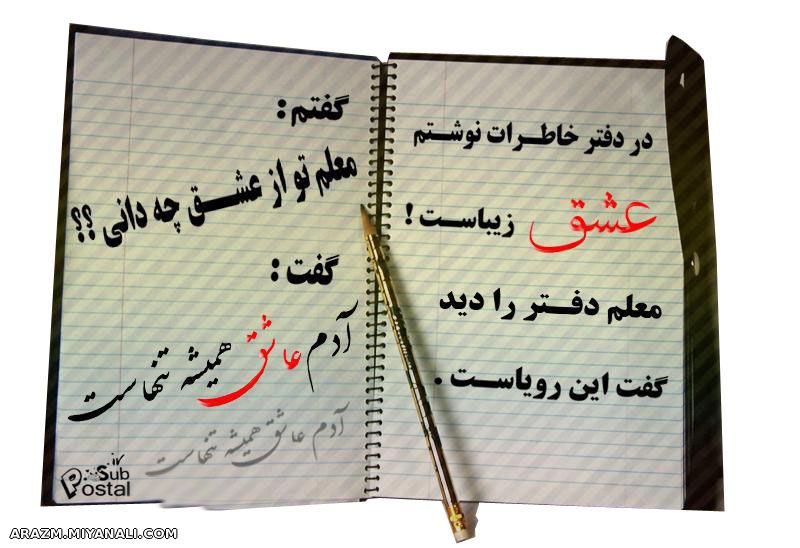 در دفتر خاطرات نوشتم
عشق زیباست !
معلم دفتر را دید
گفت این رویاست .
گفتم :
معلم تو از عشق چه دانی ؟؟
گفت :
آدم عاشق همیشه تنهاست
آدم عاشق همیشه تنهاست
Sub
Postal
ARAZM.MIYANALI.COM